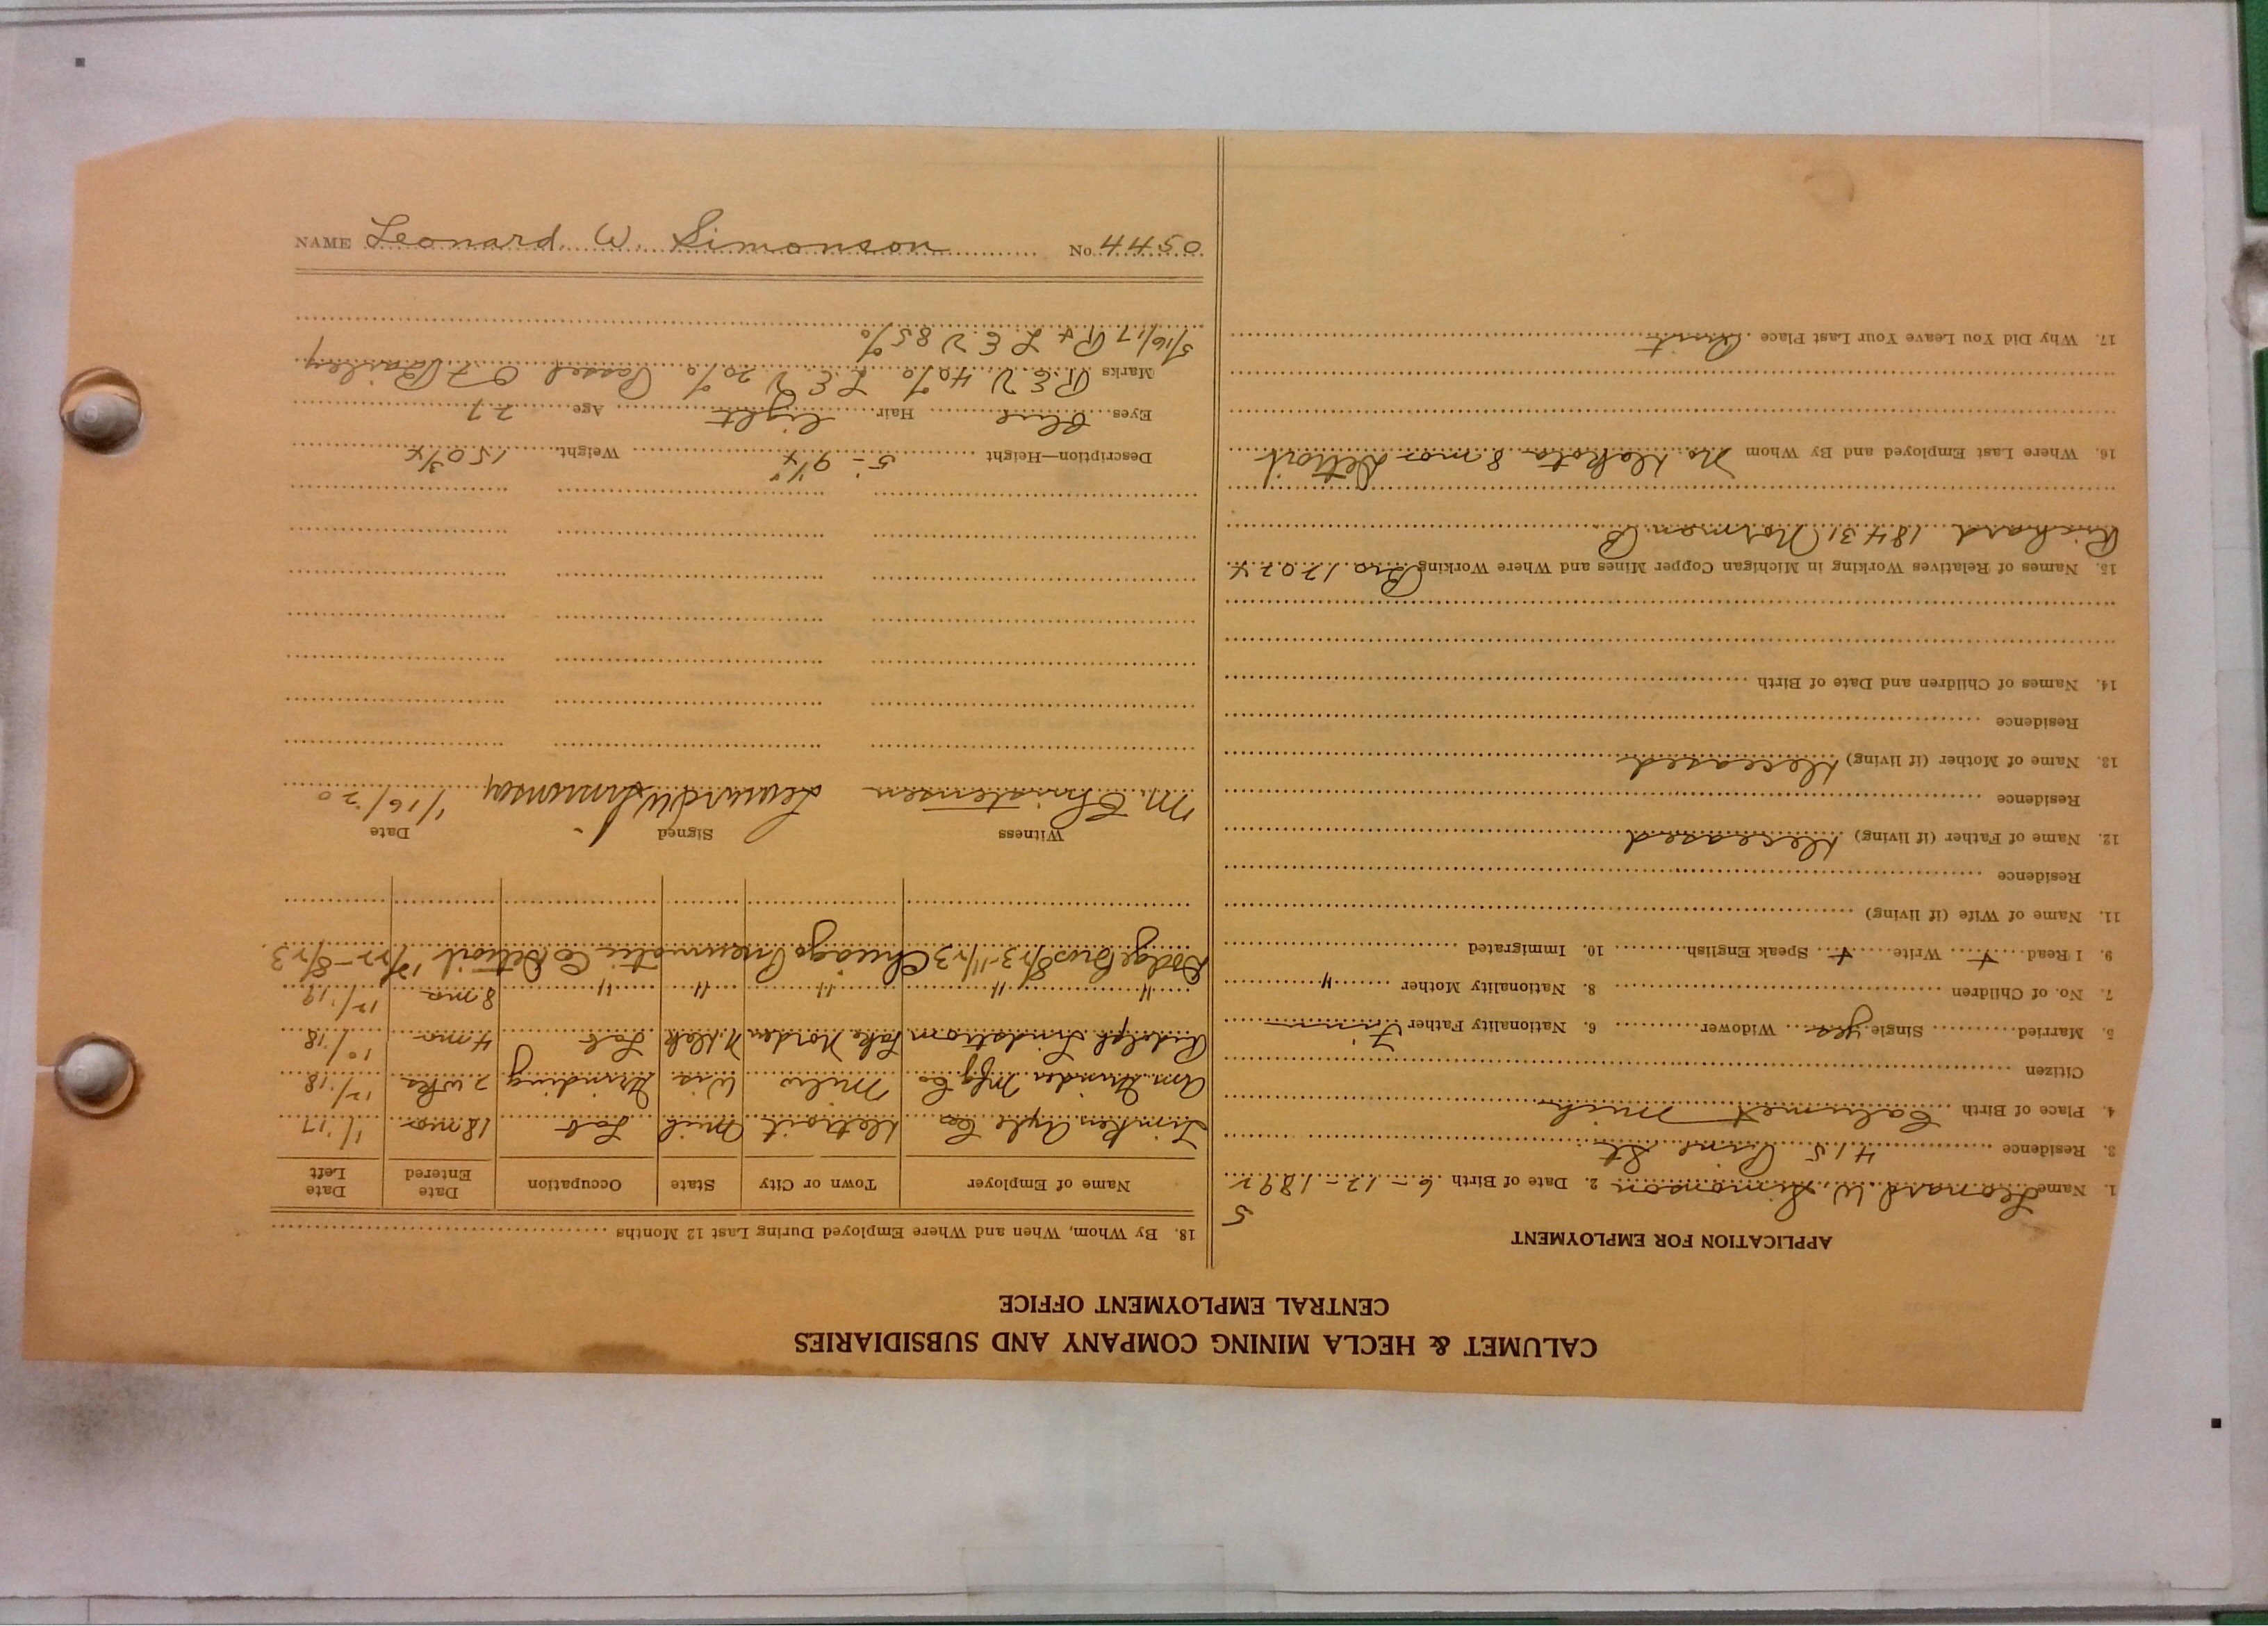 CALUMET & HECLA MINING COMPANY AND SUBSIDIARIES
CENTRAL EMPLOYMENT OFFICE
APPLICATION FOR EMPLOYMENT
5
1. Name Leonard W. Simonson 2. Date of Birth 6-12-1892
3. Residence 415 Pine St.
4. Place of Birth Calumet Mich
Citizen
5. Married Single yes Widower 6. Nationality Father Finn
7. No. of Children 8. Nationality Mother "
9. I Read Write Speak English 10. Immigrated
11. Name of Wife (if living)
Residence
12. Name of Father (if living) deceased
Residence
13. Name of Mother (if living) deceased
Residence
14. Names of Children and Date of Birth
15. Names of Relatives Working in Michigan Copper Mines and Where Working Bro 12024
Richard 18431 Norman B.
16. Where Last Employed and By Whom No. Dakota 8 mos Detroit
17. Why Did You Leave Your Last Place Quit
18. By Whom, When and Where Employed During Last 12 Months
Name of Employer Town or City State Occupation Date Entered Date Left
Timken Axle Co Detroit Mich Lab 18 mos 11/17
Am. Grinder Mfg Co Milw Wis Grinding 2 wks 12/18
Rudolph Lindstrom Lake Norden N. Dak Lab 4 mo 10/18
" " " " " 8 mo 12/19
Dodge Bros 8/23-11/23 Chicago Pneumatic Co Detroit 12/22-8/23
Witness Signed Date
M. Christensen Leonard W Simonson 1/16/20
Description—Height 5-9 1/4" Weight 150 3/4
Eyes blue Hair light Age 27
Marks REV 40% LEV 20% Passed O.F. Barsley
5/16/17 R & LEV 85%
NAME Leonard W. Simonson No. 4450